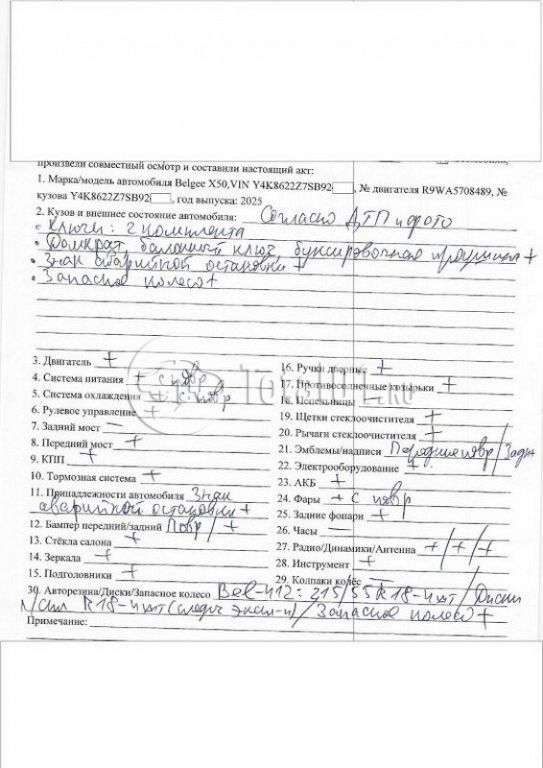 произвели совместный осмотр и составили настоящий акт:
1. Марка/модель автомобиля Belgee X50,VIN Y4K8622Z7SB92, № двигателя R9WA5708489, №
кузова Y4K8622Z7SB92, год выпуска: 2025
2. Кузов и внешнее состояние автомобиля: Согласно ДТП и фото
• Ключи: 2 комплекта
• Домкрат, балонный ключ, буксировочная проушина +
• Знак аварийной остановки +
• Запасное колесо +
3. Двигатель +
4. Система питания + с повр
5. Система охлаждения + с повр
6. Рулевое управление +
7. Задний мост —
8. Передний мост +
9. КПП +
10. Тормозная система +
11. Принадлежности автомобиля Знак
аварийной остановки +
12. Бампер передний/задний Повр / +
13. Стёкла салона +
14. Зеркала +
15. Подголовники +
16. Ручки дверные +
17. Противосолнечные козырьки +
18. Пепельницы —
19. Щетки стеклоочистителя +
20. Рычаги стеклоочистителя +
21. Эмблемы/надписи Передние повр/Задн+
22. Электрооборудование +
23. АКБ +
24. Фары + с повр
25. Задние фонари +
26. Часы —
27. Радио/Динамики/Антенна +/+/+
28. Инструмент +
29. Колпаки колёс —
30. Авторезина/Диски/Запасное колесо Bel-412: 215/55 R18-4шт/Диски
л/спл R18-4шт (следы экспл-и)/Запасное колесо +
Примечание: